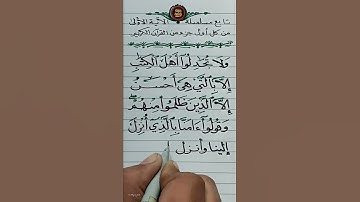 تابع سلسلة الآية الأولى
من كل أول جزء من القرآن الكريم
ولا تجدلوا أهل الكتب
إلا بالتي هي أحسن
إلا الذين ظلموا منهم
وقولوا ءامنا بالذي أنزل
إلينا وأنزل